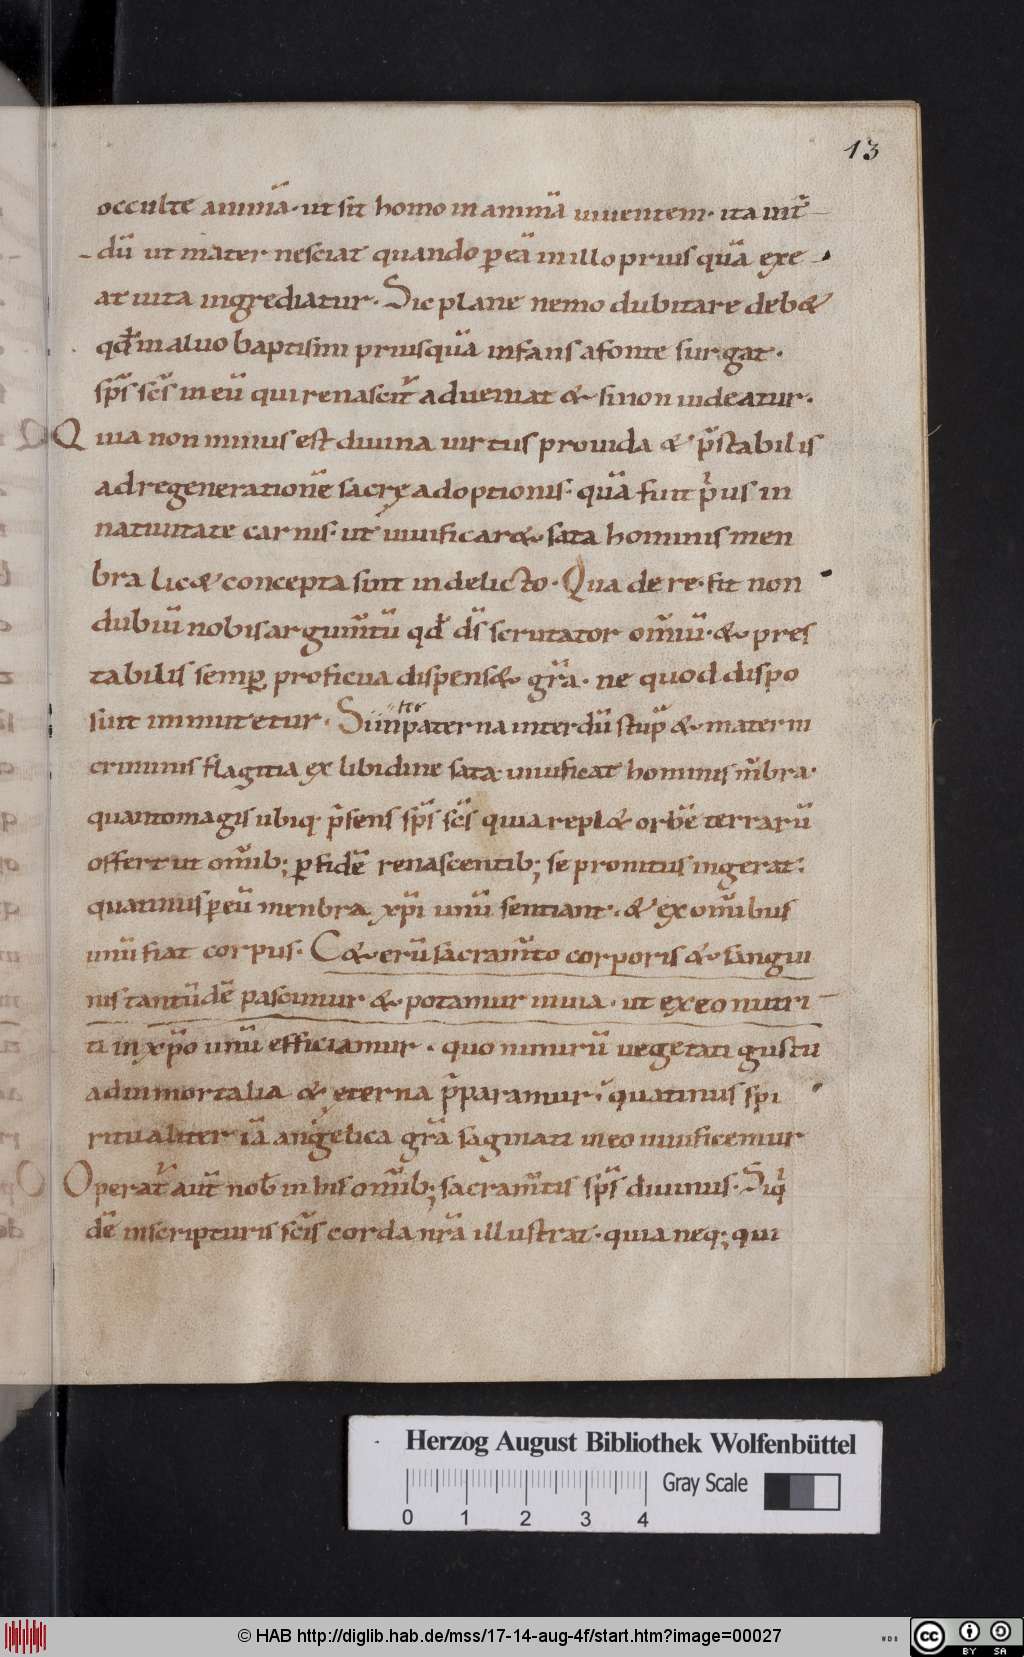 13
occulte animā· ut sit homo in animā uiuentem· ita int̄
dū ut mater nesciat quando ꝑ eā in illo prius quā exe
at uita ingrediatur· Sic plane nemo dubitare deb&
qđ in aluo baptismi priusquā infans a fonte surgat·
sp̄s sc̄s in eū qui renascit̄ adueniat & si non uideatur·
Quia non minus est diuina uirtus prouida & p̄stabilis
ad regenerationē sacrę adoptionis· quā fuit p̄us in
natiuitate carnis· ut uiuificar& sata hominis men
bra lic& concepta sint in delicto· Qua de re· fit non
dubiū nobis argum̄tū qđ ds̄ scrutator om̄iū· & pres
tabilis semꝑ proficua dispens& gr̄a· ne quod dispo
suit inmutetur· Si in paterna interdū stup̄ & matern
criminis flagitia ex libidine sata uiuificat hominis m̄bra·
quantomagis ubiq· p̄sens sp̄s sc̄s quia repl& orbē terrarū
offert ut om̄ib; ꝑ fidē renascentib; se pronitus ingerat:
quatinus ꝑ eū menbra xp̄i unū sentiant· & ex om̄ibus
unū fiat corpus· C&erū sacram̄to corporis & sangui
nis tantūdē pascimur & potamur in uia· ut ex eo nutri
ti in xp̄o unū efficiamur· quo nimirū uegetati gustu
ad inmortalia & eterna p̄paramur· quatinus spi
ritualiter iā angelica gr̄a saginati in eo uiuificemur
Operat̄ aut̄ nob̄ in his om̄ib; sacram̄tis sp̄s diuinus· Siq
dē in scripturis sc̄is corda nr̄a illustrat· quia neq; qui
Herzog August Bibliothek Wolfenbüttel
Gray Scale
0 1 2 3 4
© HAB http://diglib.hab.de/mss/17-14-aug-4f/start.htm?image=00027
cc BY SA